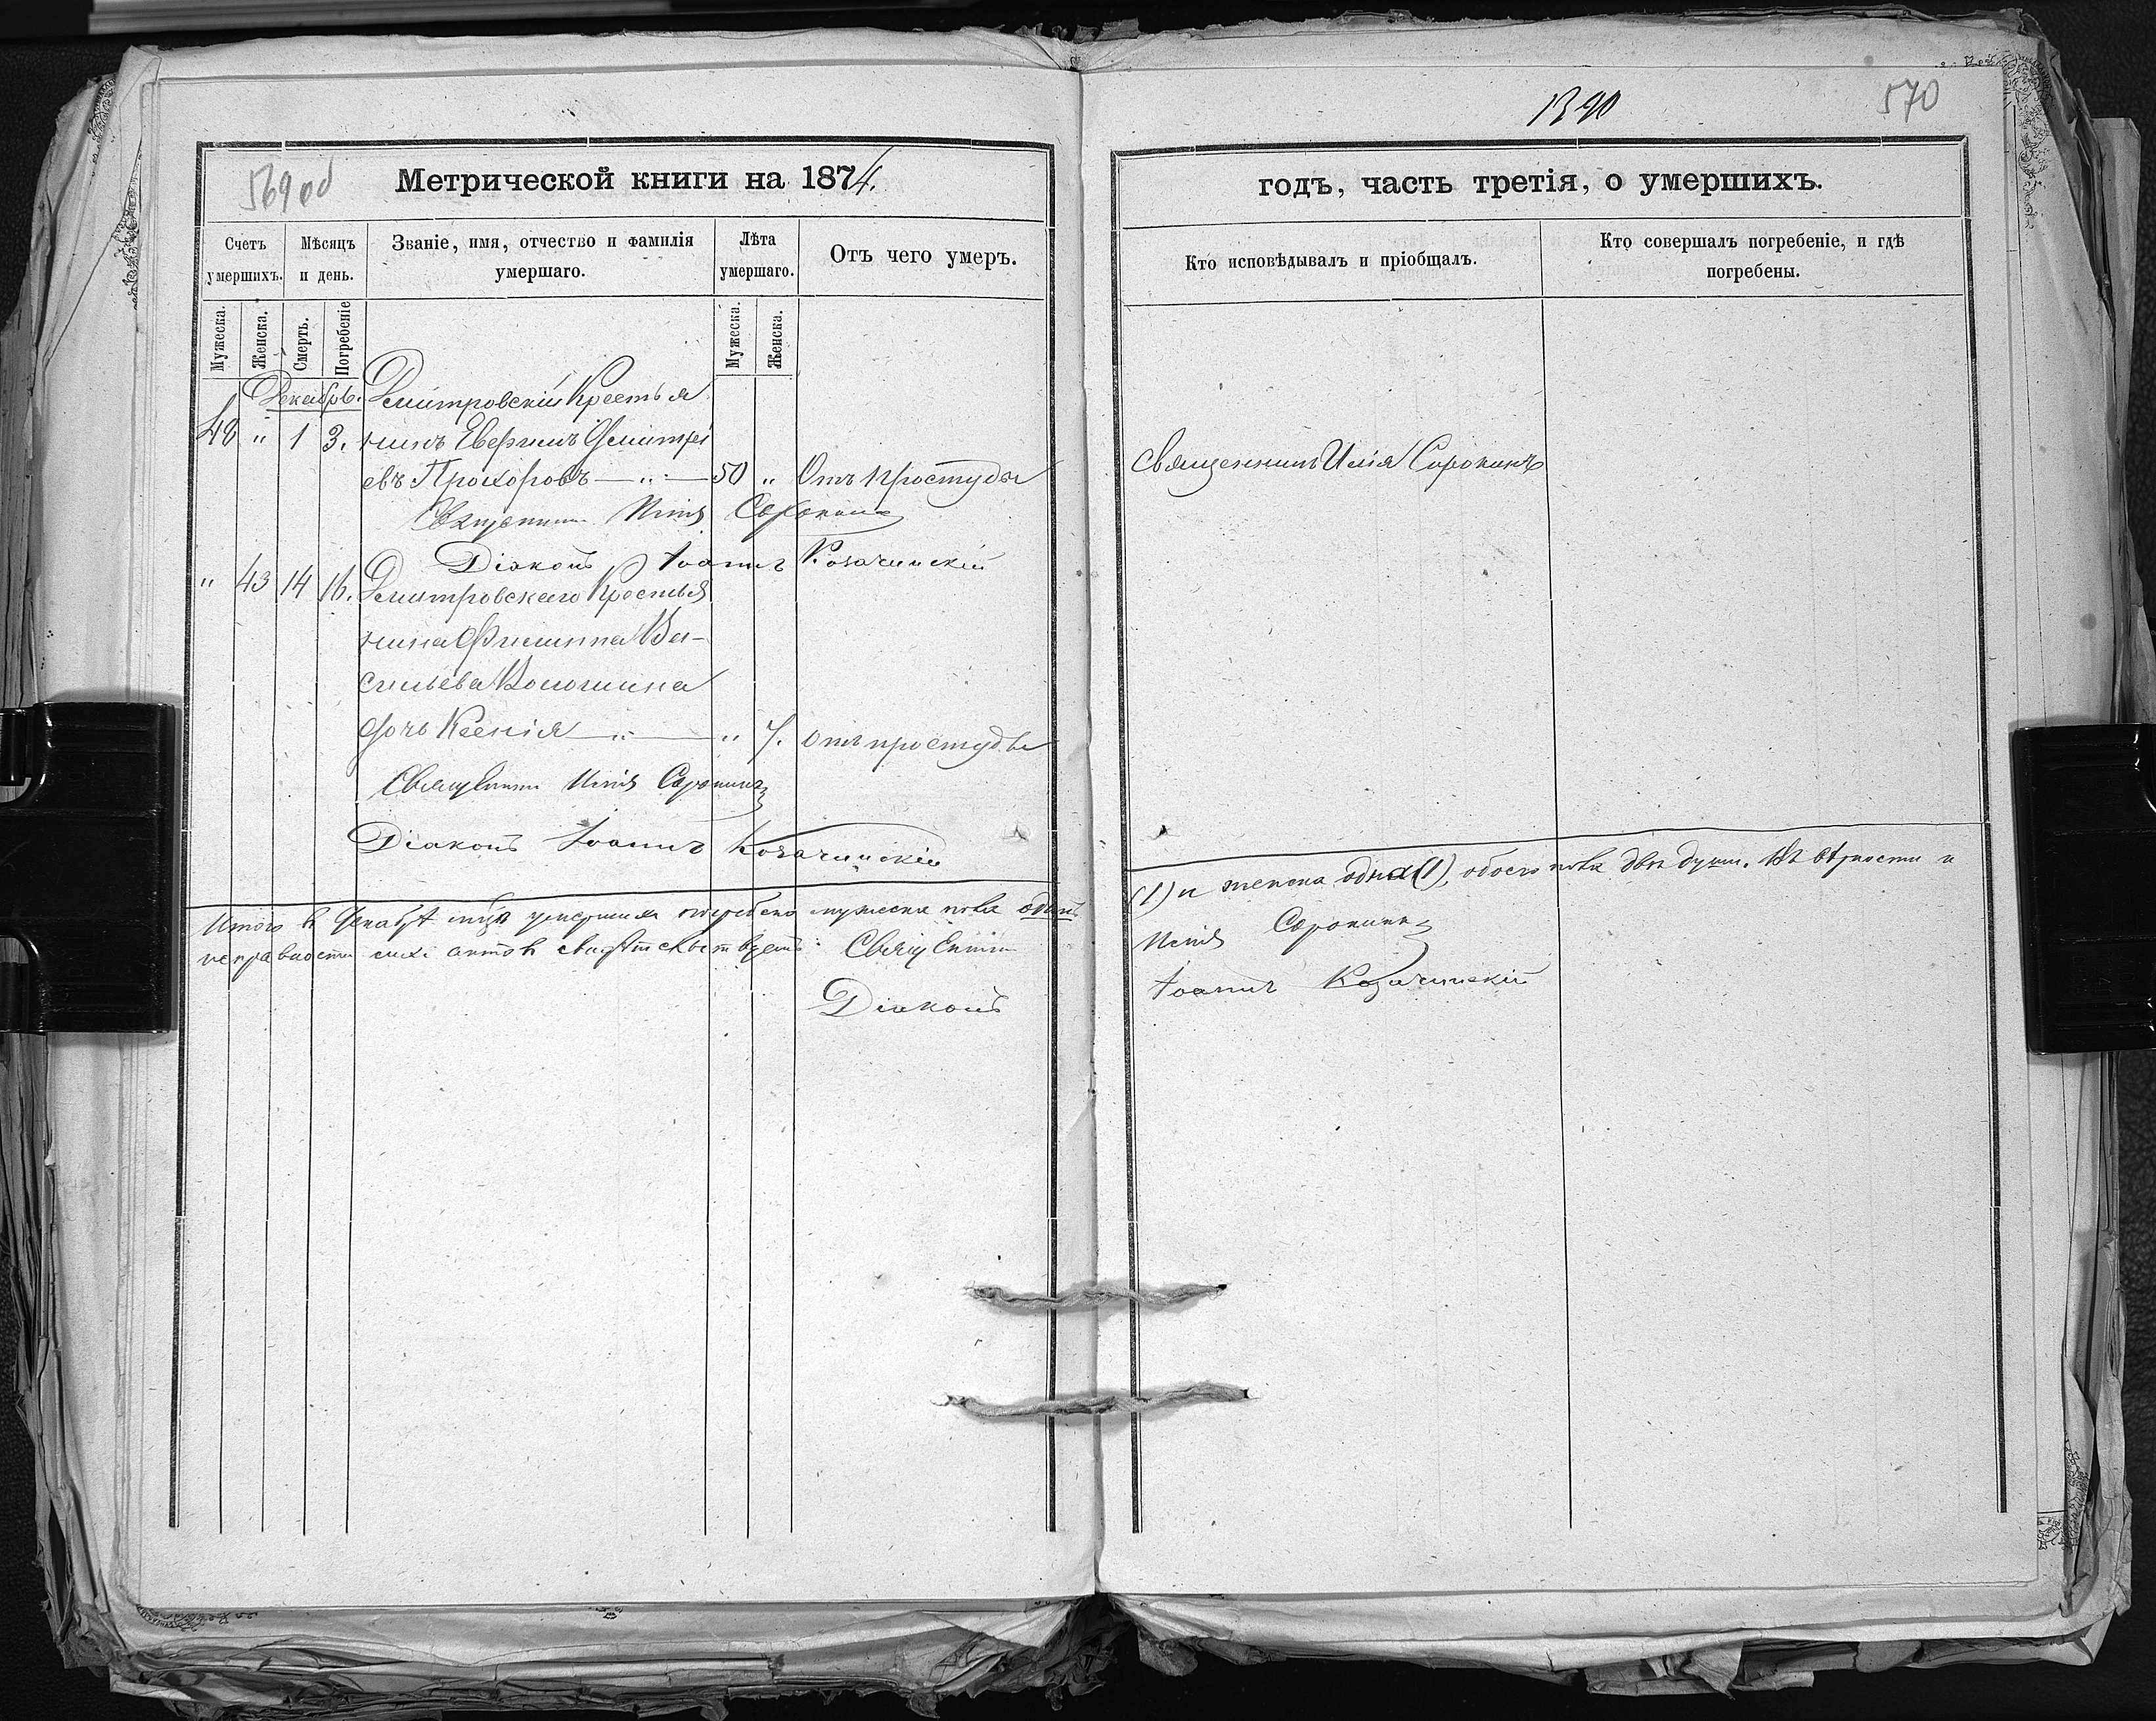 1390
570
569 об
Метрической книги на 1874.
годъ, часть третія, о умершихъ.
Счетъ умершихъ.
Мѣсяцъ и день.
Званіе, имя, отчество и фамилія умершаго.
Лѣта умершаго.
Отъ чего умеръ.
Кто исповѣдывалъ и пріобщалъ.
Кто совершалъ погребеніе, и гдѣ погребены.
Мужеска.
Женска.
Смерть.
Погребеніе
Мужеска.
Женска.
Декабрь.
Дмитровскій Крестья
48 " 1 3. нинъ Дмитрі
евъ Прохоровъ — " — 50 " Отъ простуды
Священникъ Илія Сорокинъ
Священникъ Илія Сорокинъ
Діаконъ Іоаннъ Козачинскій
" 43 14 16. Дмитровскаго Крестья
нина Филиппа Ва-
сильева Волошина
дочь Ксенія — " — " 7. отъ простуды
Священникъ Илія Сорокинъ
Діаконъ Іоаннъ Козачинскій
Итого въ Декабрѣ мцѣ умершихъ погребено мужеска пола одинъ
(1) и женска одна (1), обоего пола двѣ души. Въ вѣрности и
исправности сихъ актовъ свидѣтельствуемъ: Священникъ
Илія Сорокинъ
Діаконъ
Іоаннъ Козачинскій